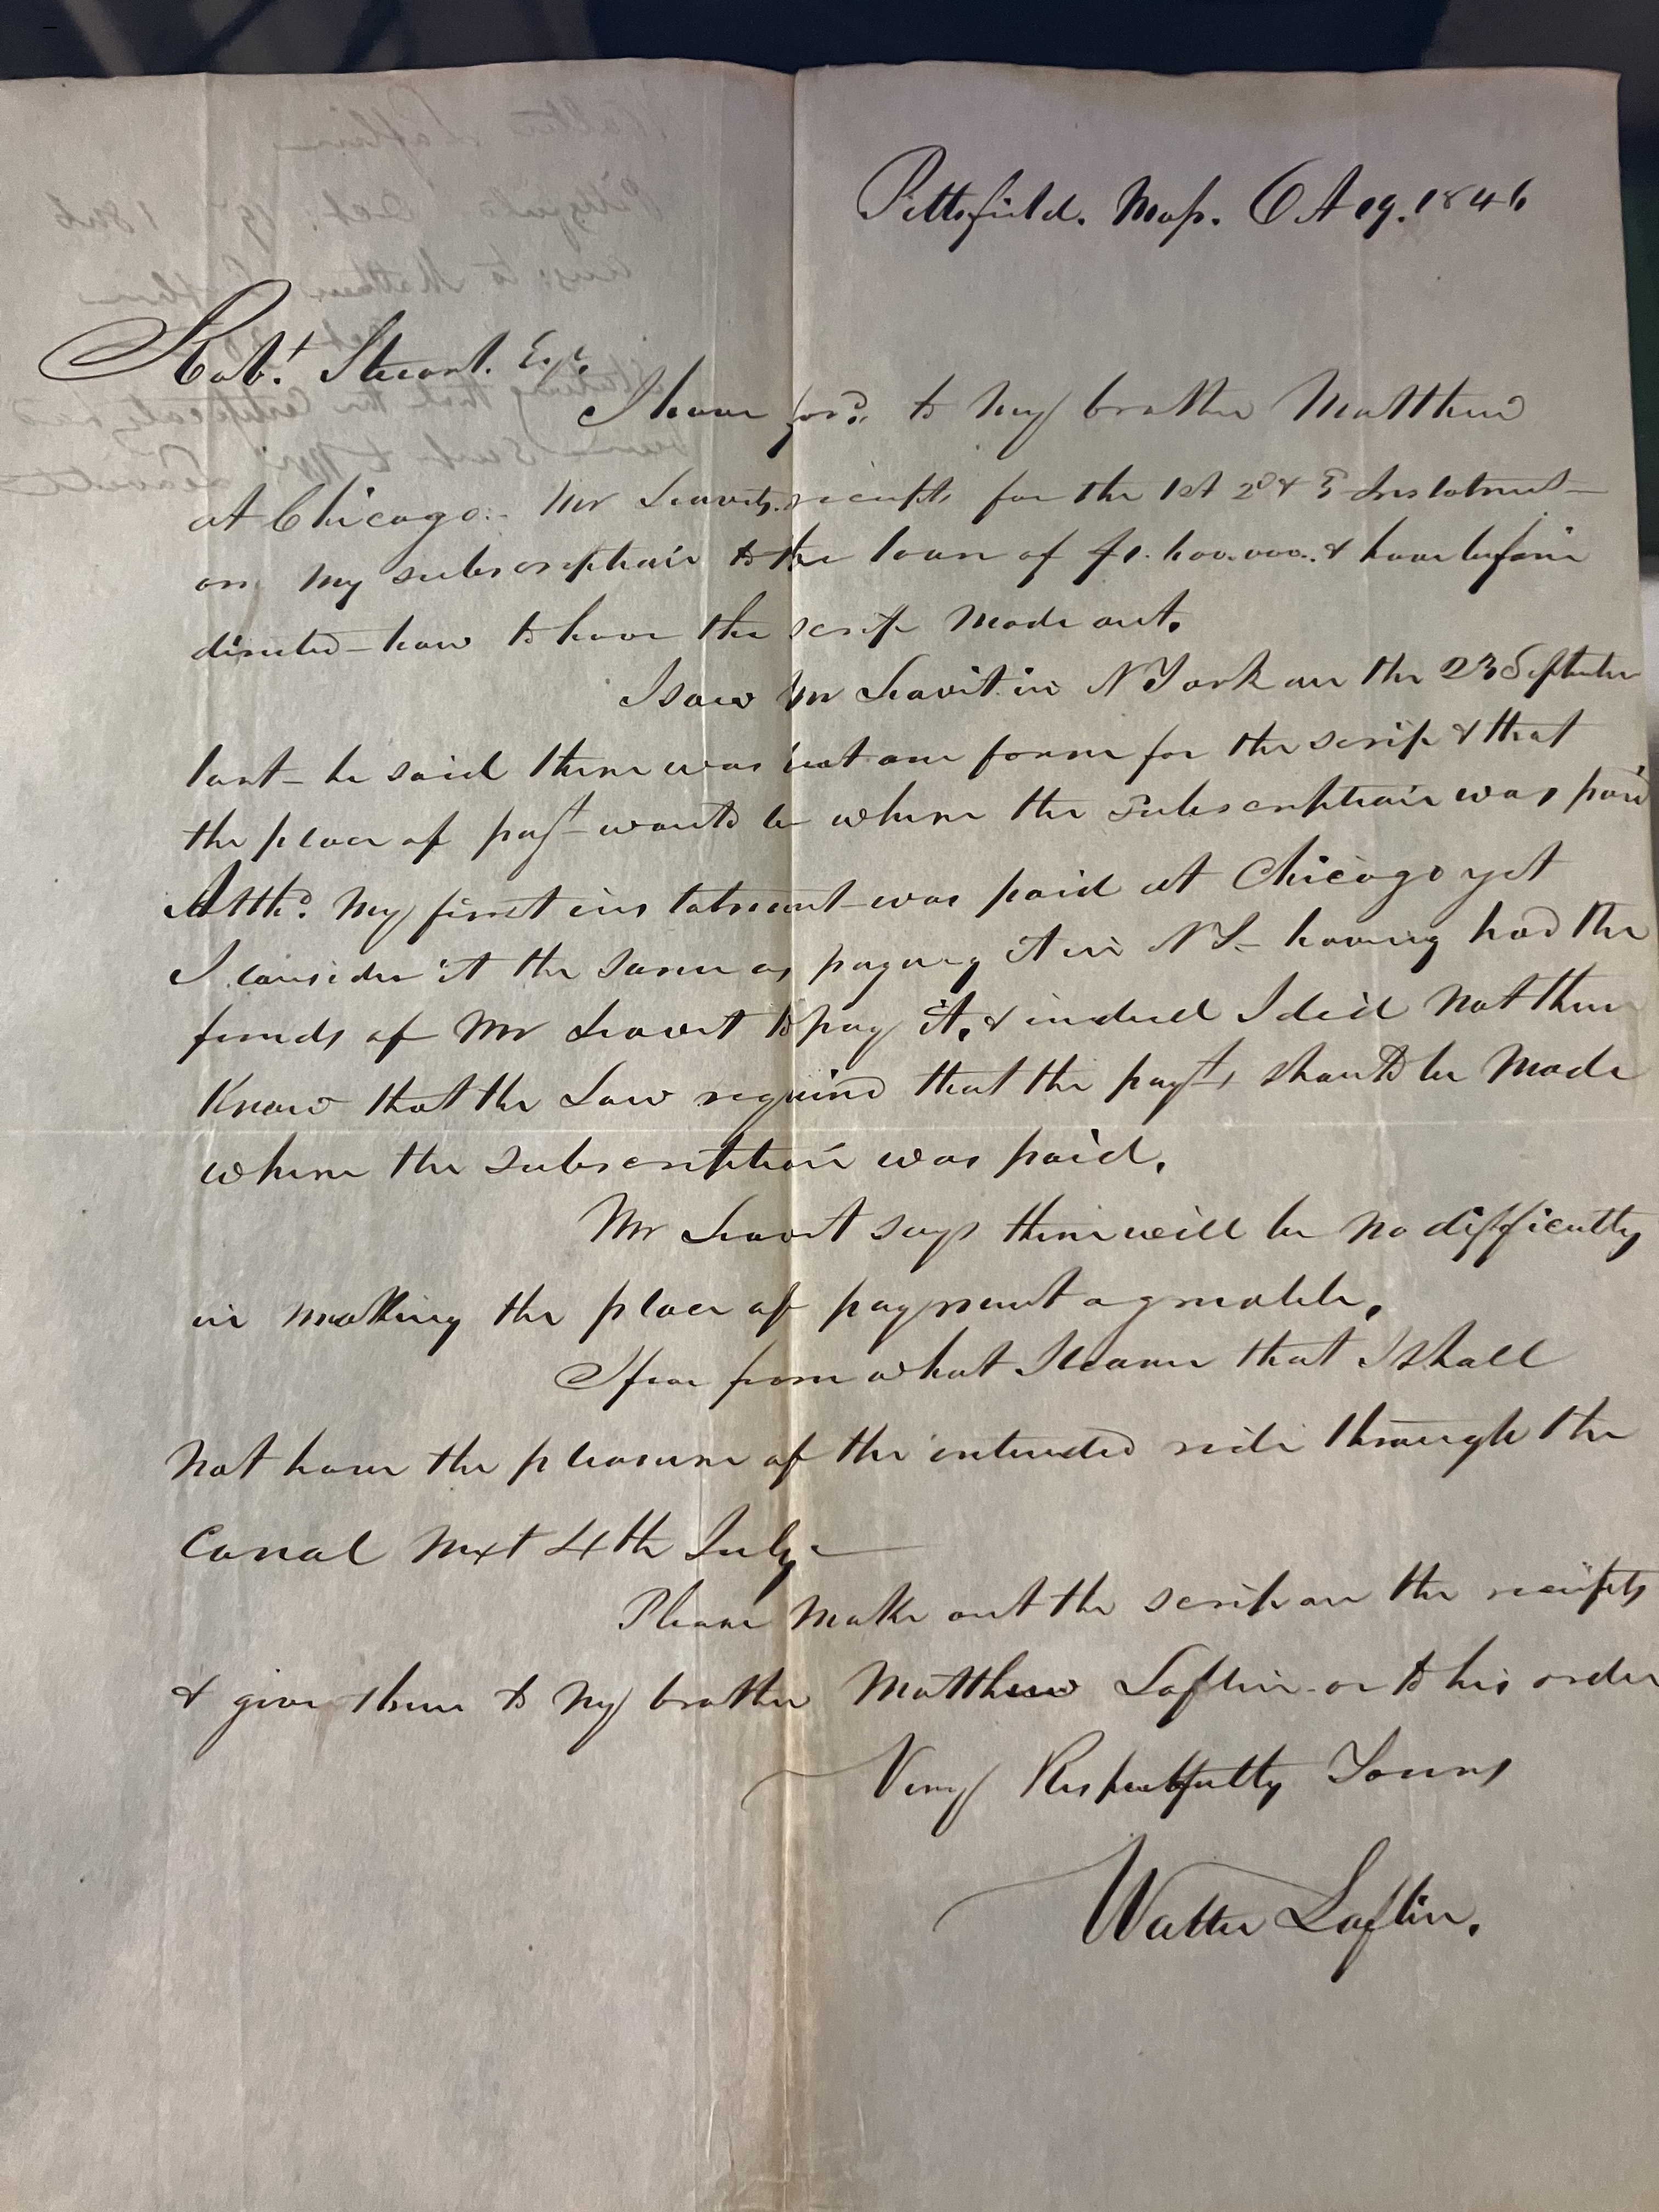 Pittsfield. Mass. Oct 19. 1846
Robt. Stuart. Esqr.
I have ford. to my brother Matthew
at Chicago. Mr Leavitts receipts for the 1st 2d & 3 Instalment
on my subscription to the loan of $1.600.000. & have before
directed how to have the scrip made out.
I saw Mr Leavit in N York on the 23 September
last he said there was but one form for the scrip & that
the place of payt would be where the subscription was paid
Altho. my first instalment was paid at Chicago yet
I consider it the same as paying it in NY having had the
funds of Mr Leavit to pay it, & indeed I did not then
know that the Law required that the payts should be made
where the subscription was paid.
Mr Leavit says there will be no difficulty
in making the place of payment agreeable.
I fear from what I learn that I shall
not have the pleasure of the intended ride through the
Canal next 4th July.
Please make out the scrip on the receipts
& give them to my brother Matthew Laflin or to his order
Very Respectfully Yours
Walter Laflin.
Walter Laflin
Pittsfield Oct. 19 1846
to Matthew Laflin
stating that the Certificate had
been Sent to
Leavitt